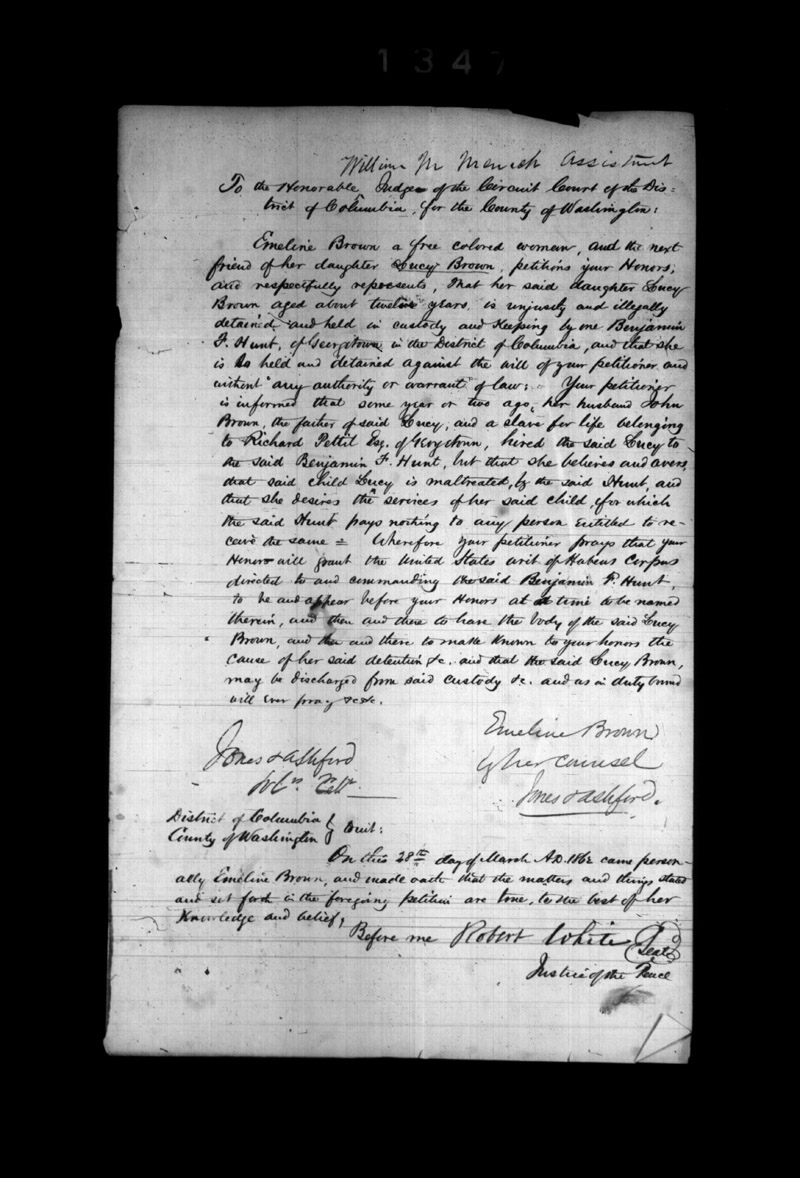 1347
William M Merrick Assistant
To the Honorable Judge of the Circuit Court of the Dis=
trict of Columbia, for the County of Washington:
Emeline Brown a free colored woman, and the next
friend of her daughter Lucy Brown, petitions your Honors,
and respectfully represents, that her said daughter Lucy
Brown aged about twelve years, is unjustly and illegally
detained, and held in custody and keeping by one Benjamin
F. Hunt, of Georgetown, in the District of Columbia, and that she
is so held and detained against the will of your petitioner and
without any authority or warrant of law: Your petitioner
is informed that some year or two ago, her husband John
Brown, the father of said Lucy, and a slave for life belonging
to Richard Pettit Esq. of Geo,town, hired the said Lucy to
the said Benjamin F. Hunt, but that she believes and avers,
that said child Lucy is maltreated, by the said Hunt, and
that she desires the services of her said child, for which
the said Hunt pays nothing to any person entitled to re-
ceive the same = Wherefore your petitioner prays that your
Honors will grant the United States writ of Habeas Corpus
directed to and commanding the said Benjamin F. Hunt,
to be and appear before your Honors at a time to be named
therein, and then and there to have the body of the said Lucy
Brown, and then and there to make known to your honors the
cause of her said detention &c. and that the said Lucy Brown,
may be discharged from said custody &c. and as in duty bound
will ever pray &c&c.
Emeline Brown
by her counsel
Jones & Ashford.
Jones & Ashford
District of Columbia
County of Washington } to wit:
On this 28th day of March A.D. 1862 came person-
ally Emeline Brown, and made oath that the matters and things stated
and set forth in the foregoing petition are true, to the best of her
Knowledge and belief,
Before me Robert White (Seal)
Justice of the Peace